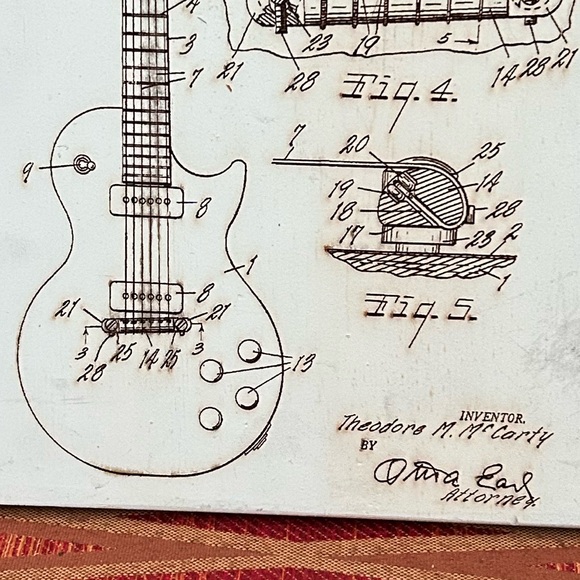 4
3
7
21
23
19
28
5
14
28
21
Fig. 4.
9
8
1
8
21
21
3
28
25
14
25
3
13
7
20
25
19
14
18
28
17
23
2
1
Fig. 5.
INVENTOR.
Theodore M. McCarty
BY
Attorney.